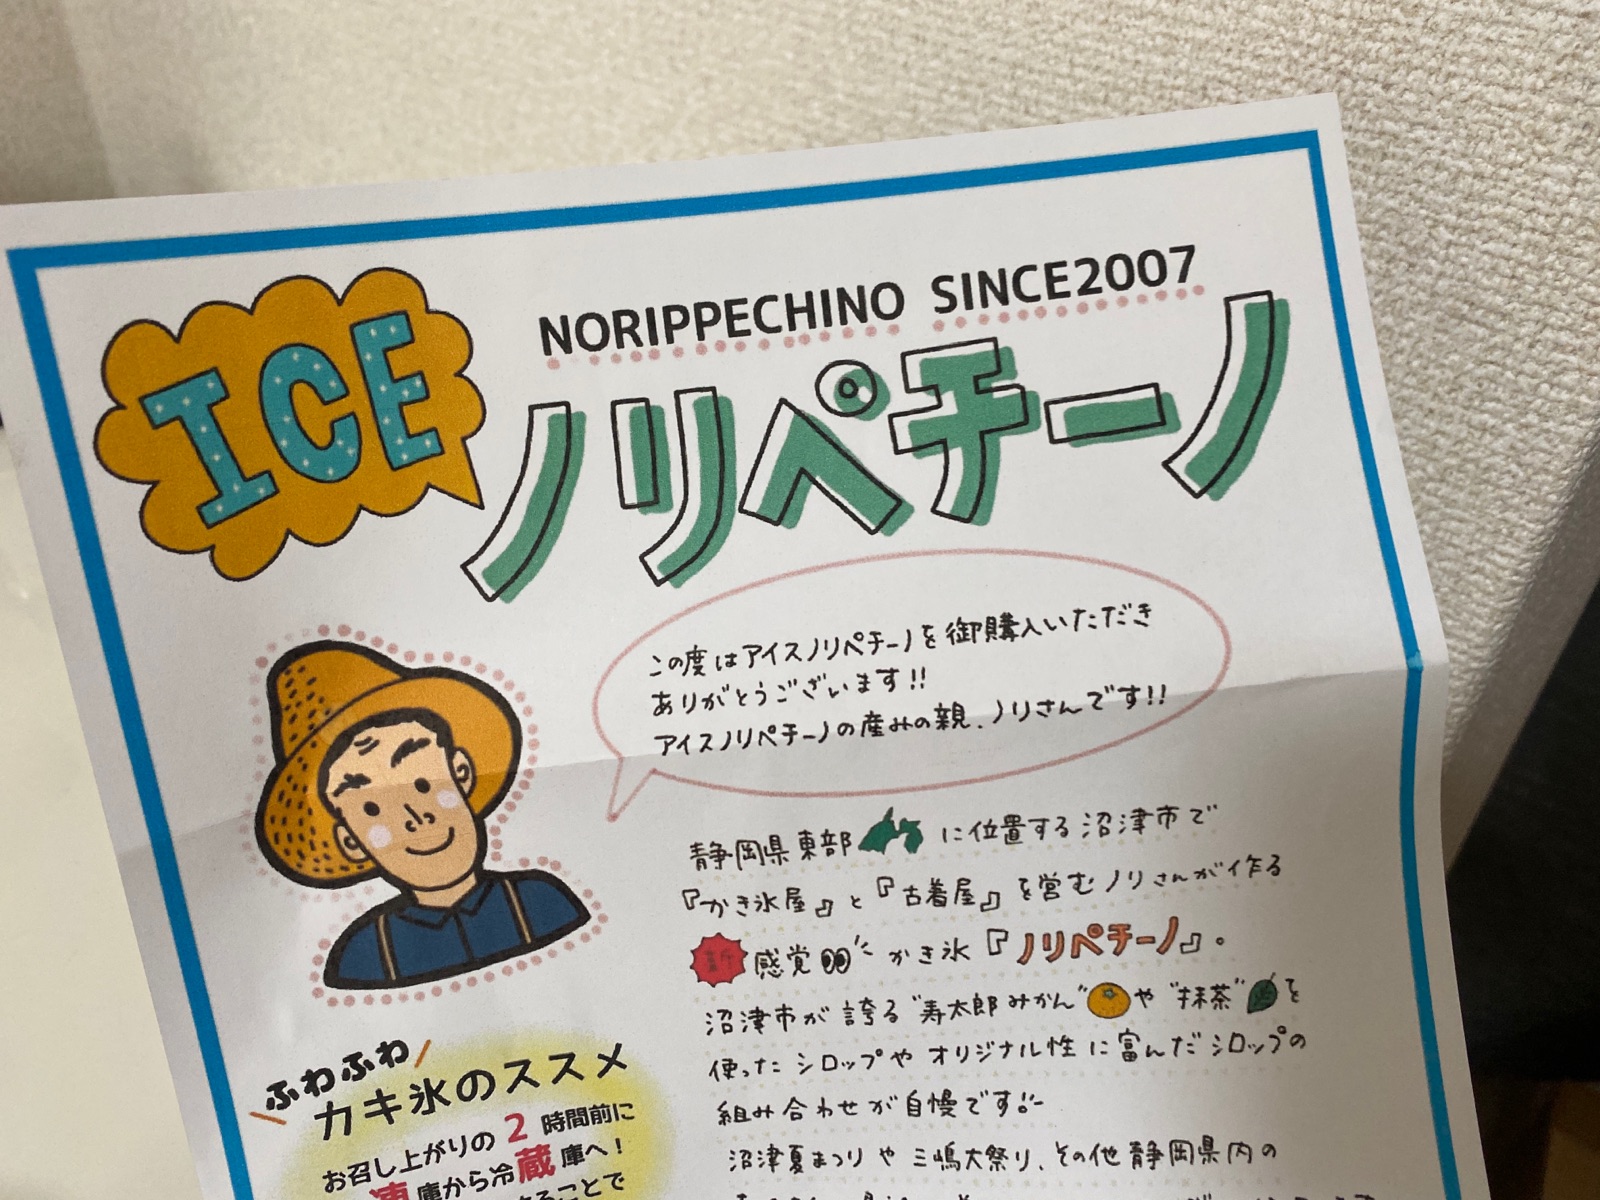 ICE
NORIPPECHINO SINCE2007
ノリペチーノ
この度はアイスノリペチーノを御購入いただき
ありがとうございます!!
アイスノリペチーノの産みの親、ノリさんです!!
静岡県東部に位置する沼津市で
『かき氷屋』と『古着屋』を営むノリさんが作る
新感覚かき氷『ノリペチーノ』。
沼津市が誇る"寿太郎みかん"や"抹茶"を
使ったシロップやオリジナル性に富んだシロップの
組み合わせが自慢です!!
沼津夏まつりや三嶋大祭り、その他静岡県内の
ふわふわ
カキ氷のススメ
お召し上がりの2時間前に
凍庫から冷蔵庫へ!
ることで